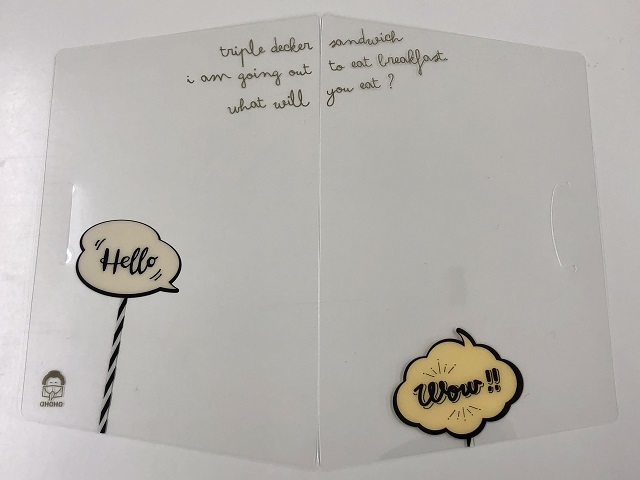 triple decker sandwich
i am going out to eat breakfast
what will you eat ?
"Hello"
Wow!!
OHOHO